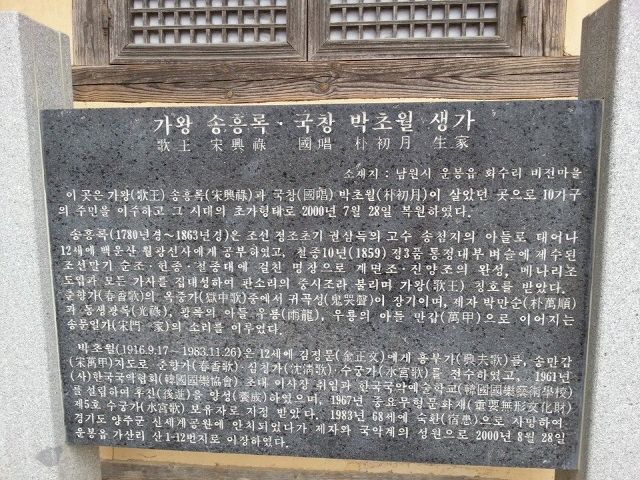 가왕 송흥록 · 국창 박초월 생가
歌王 宋興祿 國唱 朴初月 生家
소재지 : 남원시 운봉읍 화수리 비전마을
이 곳은 가왕(歌王) 송흥록(宋興祿)과 국창(國唱) 박초월(朴初月)이 살았던 곳으로 10가구
의 주민을 이주하고 그 시대의 초가형태로 2000년 7월 28일 복원하였다.
송흥록(1780년경~1863년경)은 조선 정조초기 권삼득의 고수 송첨지의 아들로 태어나
12세에 백운산 월광선사에게 공부하였고, 철종10년(1859) 정3품 통정대부 벼슬에 제수된
조선말기 순조·헌종·철종대에 걸친 명창으로 계면조·진양조의 완성, 메나리조
도입과 모든 가사를 집대성하여 판소리의 중시조라 불리며 가왕(歌王) 칭호를 받았다.
춘향가(春香歌)의 옥중가(獄中歌)중에서 귀곡성(鬼哭聲)이 장기이며, 제자 박만순(朴萬順)
과 동생광록(光祿), 광록의 아들 우룡(雨龍), 우룡의 아들 만갑(萬甲)으로 이어지는
송문일가(宋門一家)의 소리를 이루었다.
박초월(1916.9.17~1983.11.26)은 12세에 김정문(金正文)에게 흥부가(興夫歌)를, 송만갑
(宋萬甲)지도로 춘향가(春香歌)·심청가(沈淸歌)·수궁가(水宮歌)를 전수하였고, 1961년
(사)한국국악협회(韓國國樂協會) 초대 이사장 취임과 한국국악예술학교(韓國國樂藝術學校)
를 설립하여 후진(後進)을 양성(養成)하였으며, 1967년 중요무형문화재(重要無形文化財)
제5호 수궁가(水宮歌) 보유자로 지정 받았다. 1983년 68세에 숙환(宿患)으로 사망하여
경기도 양주군 신세계공원에 안치되었다가 제자와 국악계의 성원으로 2000년 8월 28일
운봉읍 가산리 산1-12번지로 이장하였다.